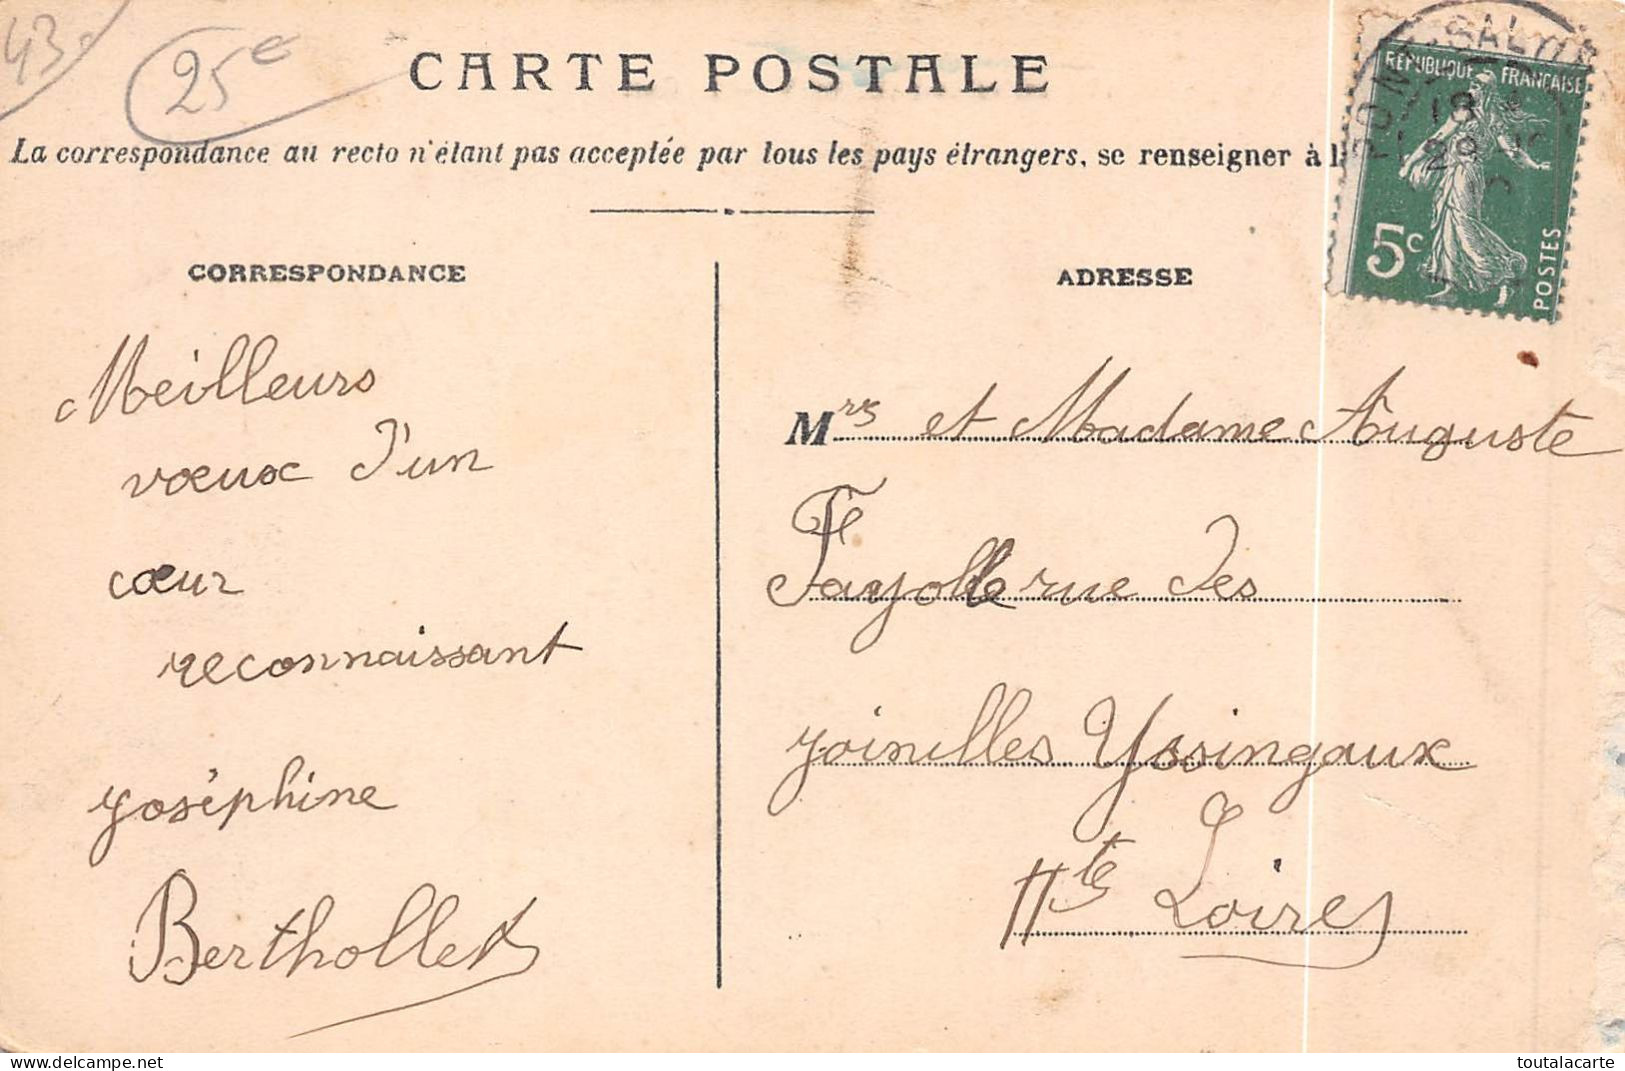 43
25€
CARTE POSTALE
La correspondance au recto n'étant pas acceptée par tous les pays étrangers, se renseigner à l
RÉPUBLIQUE FRANÇAISE
18
29
5c
POSTES
CORRESPONDANCE
ADRESSE
Meilleurs
vœux d'un
cœur
reconnaissant
Joséphine
Berthollet
Mrs et Madame Auguste
Fayolle rue des
joinelles Yssingaux
Hte Loire
delcampe.net
toutalacarte